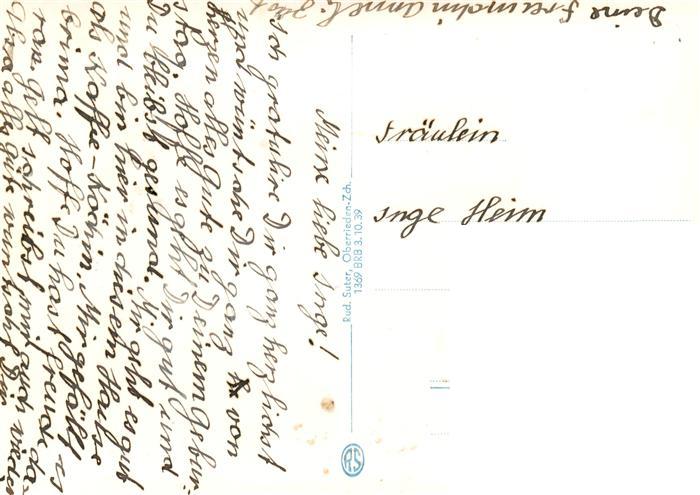 Meine liebe Inge!
Ich gratuliere Dir ganz herzlichst
und wünsche Dir ganz von
herzen alles Gute zu Deinem gebur-
stag. Hoffe es geht Dir gut und
Du bleibst gesund. Mir geht es gut
und bin hier in diesem Hause
als Kaffe-Köchin. Mir gefällt es
prima. Hoffe Du hast freude da-
ran. Gelt schreibst mir auch wieder
Alles gute wünscht Dir
Deine freundin
Fräulein
Inge Heim
Rud. Suter, Oberrieden-Zch.
1369 BRB 3.10.39
RS